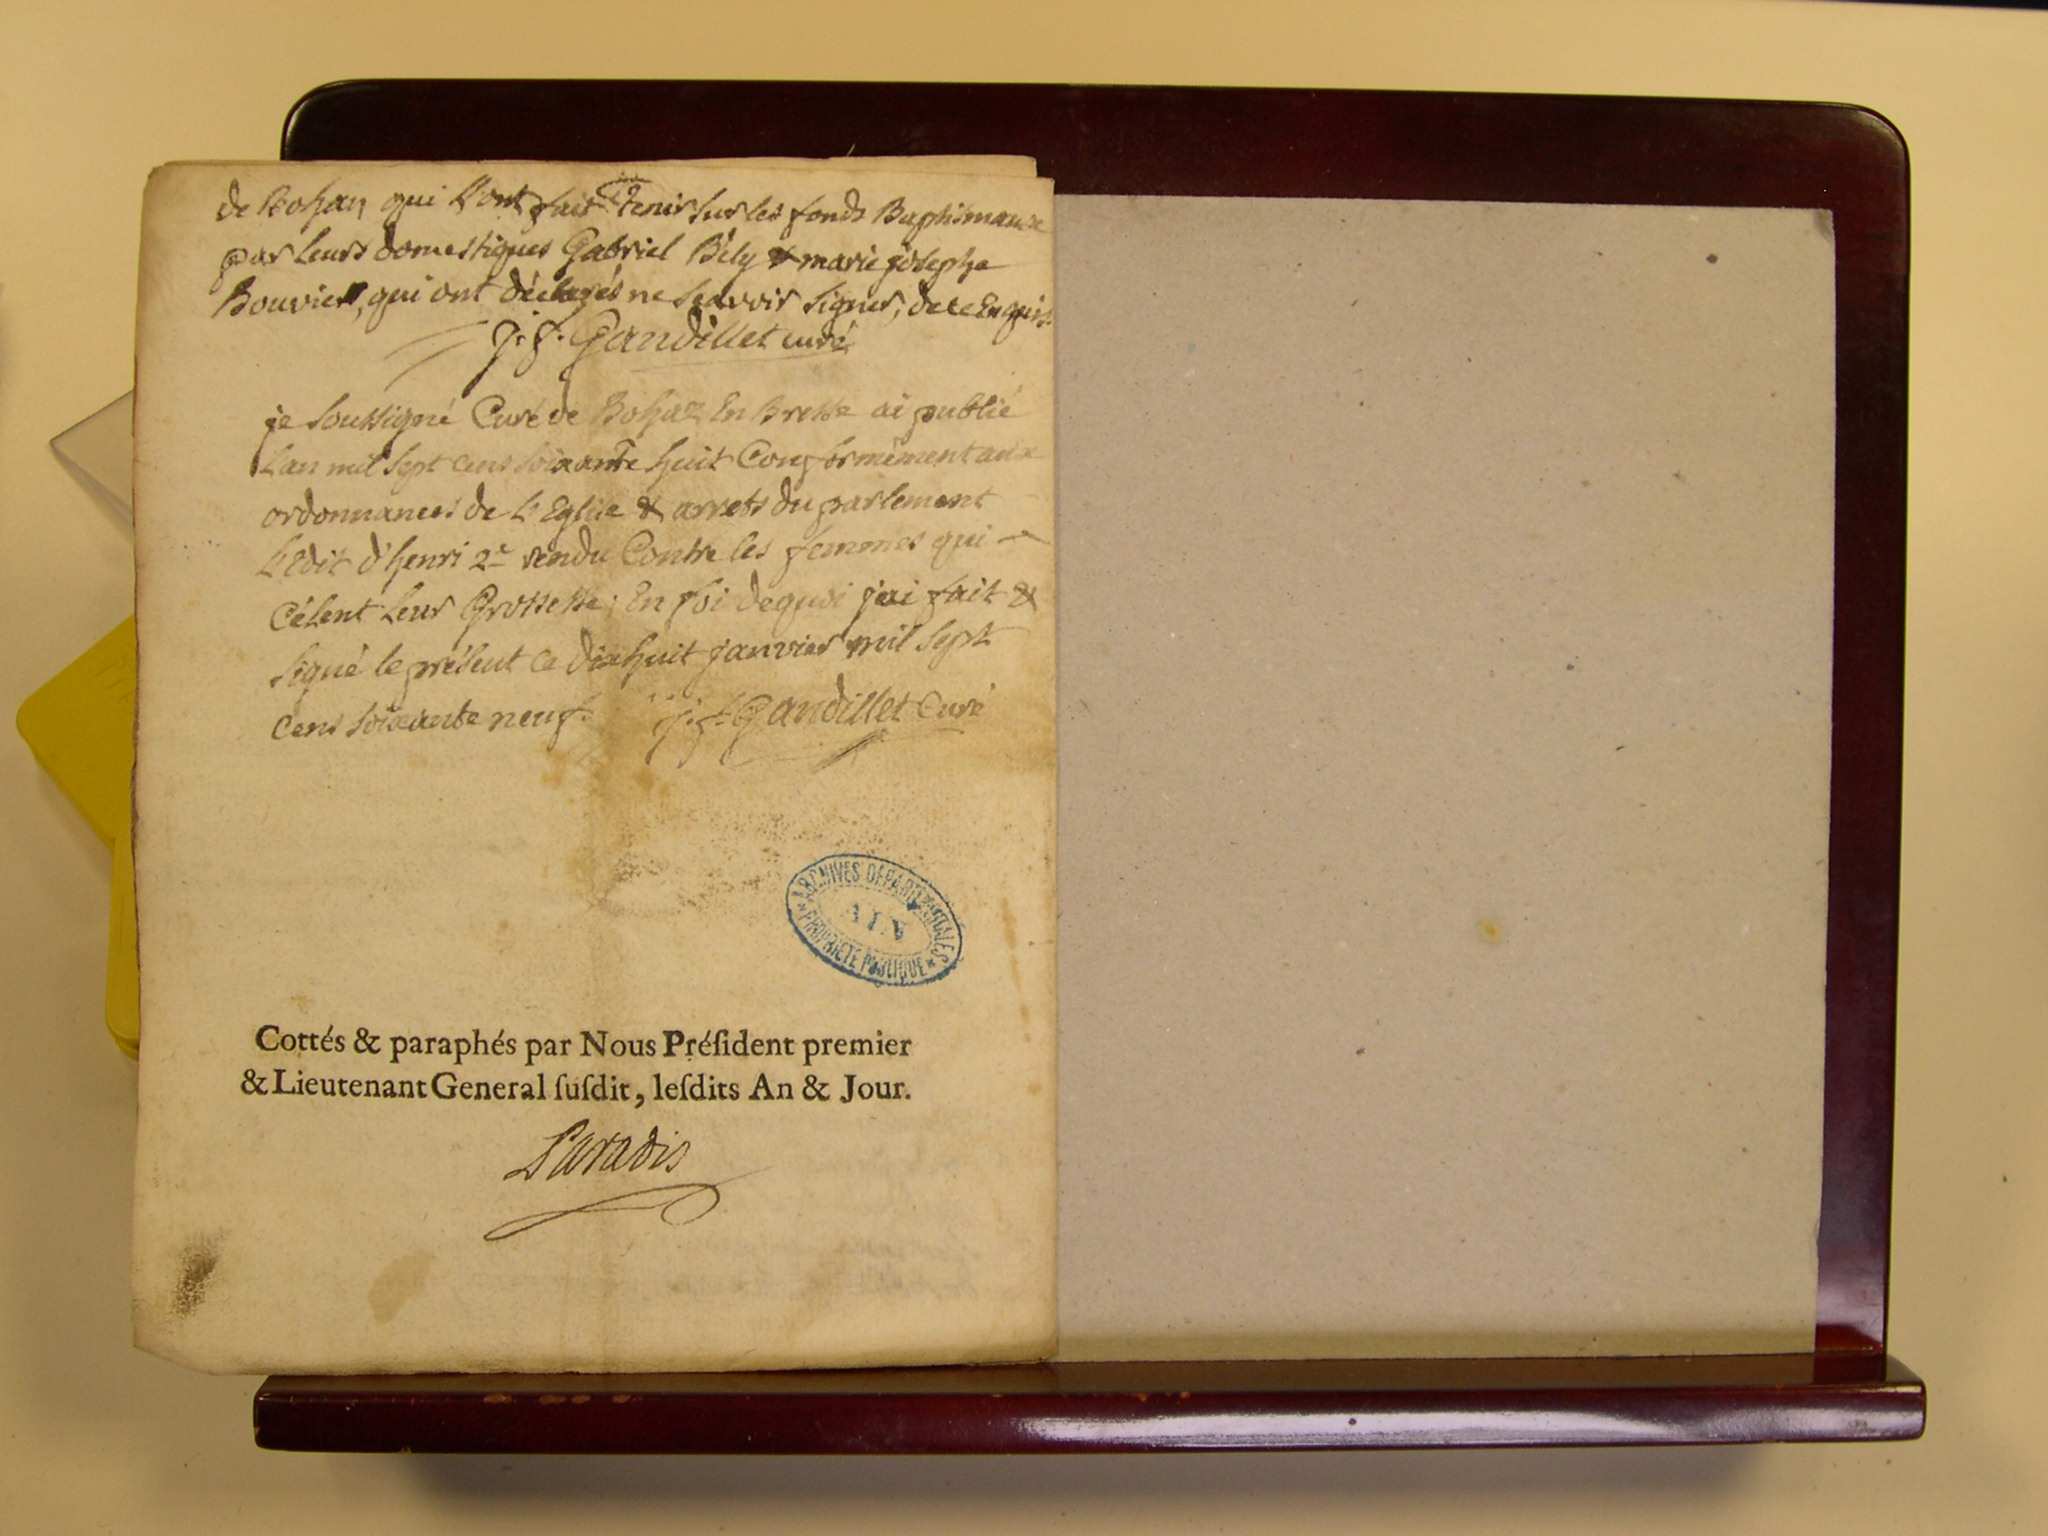 de Bohan qui l'ont fait tenir sur les fonds Baptismaux
par leurs domestiques Gabriel Bély & marie josephe
Bouvier, qui ont déclarés ne scavoir signer, de ce Enquis.
j. f. Gandillet curé
je soussigné Curé de Bohaz En Bresse ai publié
L'an mil sept cens soixante huit Conformément aux
ordonnances de L'Eglise & arrets du parlement
L'Edit d'henri 2e rendu Contre les femmes qui
Célent Leur Grossesse; En foi de quoi j'ai fait &
signé le présent ce dixhuit janvier mil sept
cens soixante neuf. j. f. Gandillet Curé
ARCHIVES DÉPARTEMENTALES
AIN
PROPRIÉTÉ PUBLIQUE
Cottés & paraphés par Nous Préſident premier
& Lieutenant General ſuſdit, leſdits An & Jour.
Paradis